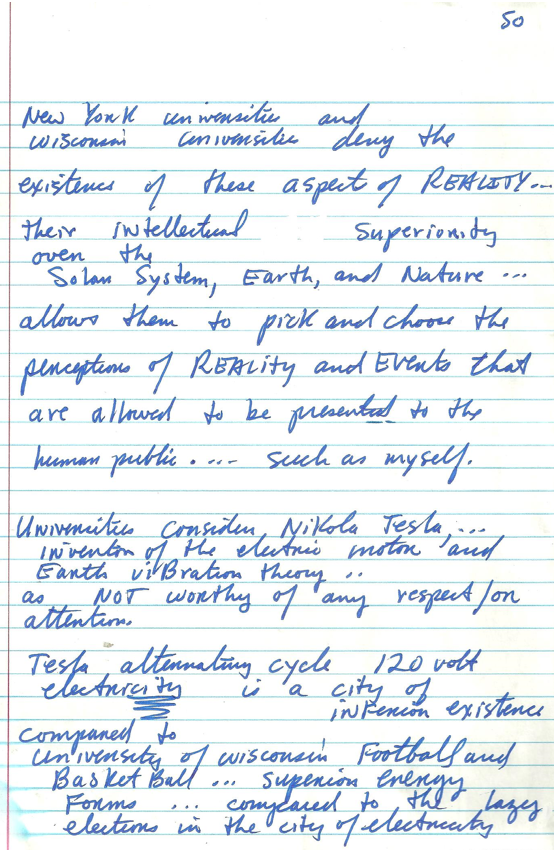 50
New York universities and
wisconsin universities deny the
existence of these aspect of REALITY...
their intellectual superiority
over the
Solar System, Earth, and Nature ...
allows them to pick and choose the
perceptions of REALity and EVents that
are allowed to be presented to the
human public ..... such as myself.
Universities consider Nikola Tesla, ...
inventor of the electric motor and
Earth viBration theory ..
as NOT worthy of any respect/or
attention.
Tesla alternating cycle 120 volt
electricity is a city of
inferior existence
compared to
university of wisconsin Football and
BasketBall ... superior energy
Forms ... compared to the lazy
electrons in the city of electricity